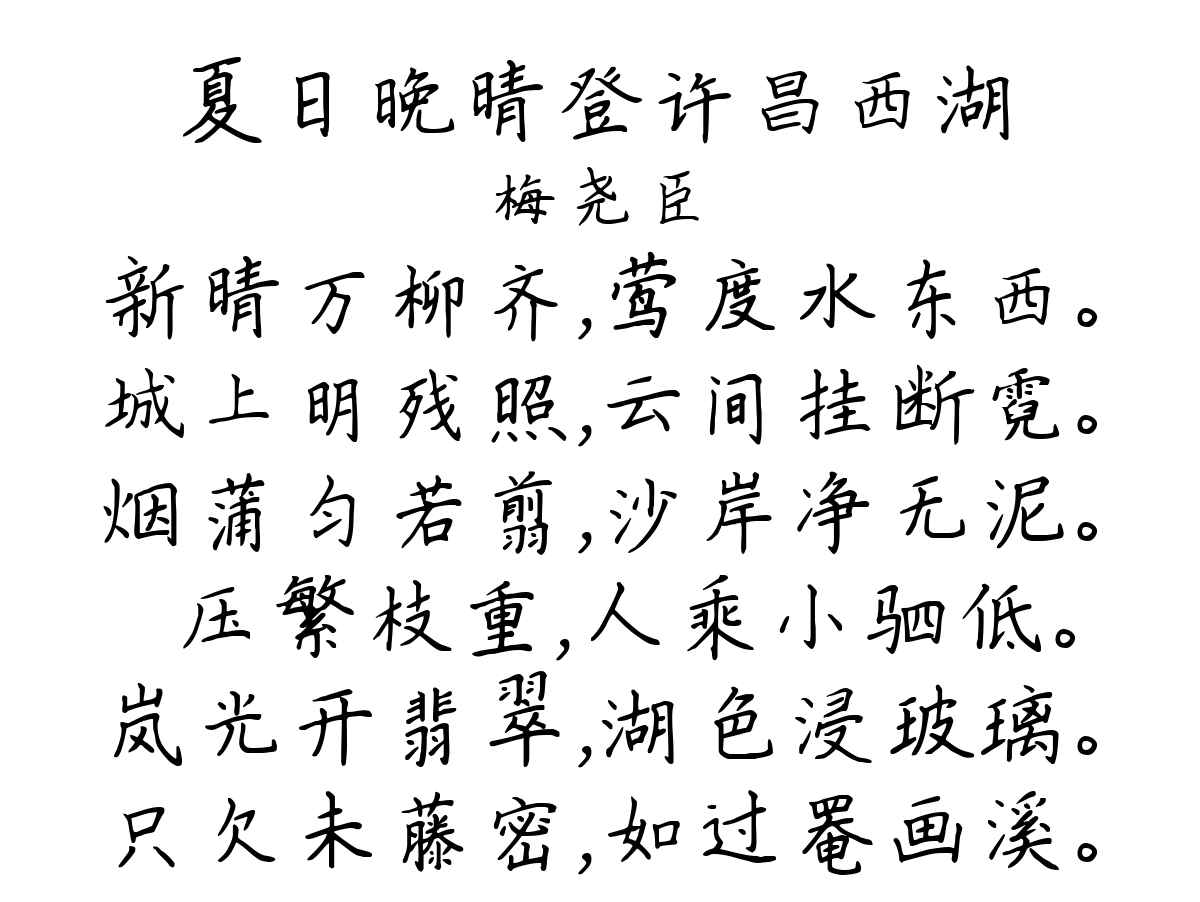 夏日晚晴登许昌西湖
梅尧臣
新晴万柳齐,莺度水东西。
城上明残照,云间挂断霓。
烟蒲匀若剪,沙岸净无泥。
压繁枝重,人乘小驷低。
岚光开翡翠,湖色浸玻璃。
只欠未藤密,如过罨画溪。